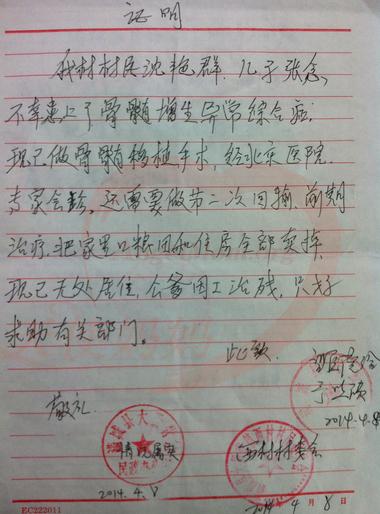 证明
我村村民沈艳群，儿子张念
不幸患上了骨髓增生异常综合症。
现已做骨髓移植手术，经北京医院
专家会诊，还需要做第二次回输，前期
治疗，把家里口粮田和住房全部卖掉，
现已无处居住，公爹因工治残，只好
求助有关部门。
此致
敬礼
情况属实
西村村委会
2014.4.8
2014.4.8
2014年4月8日
EC222011